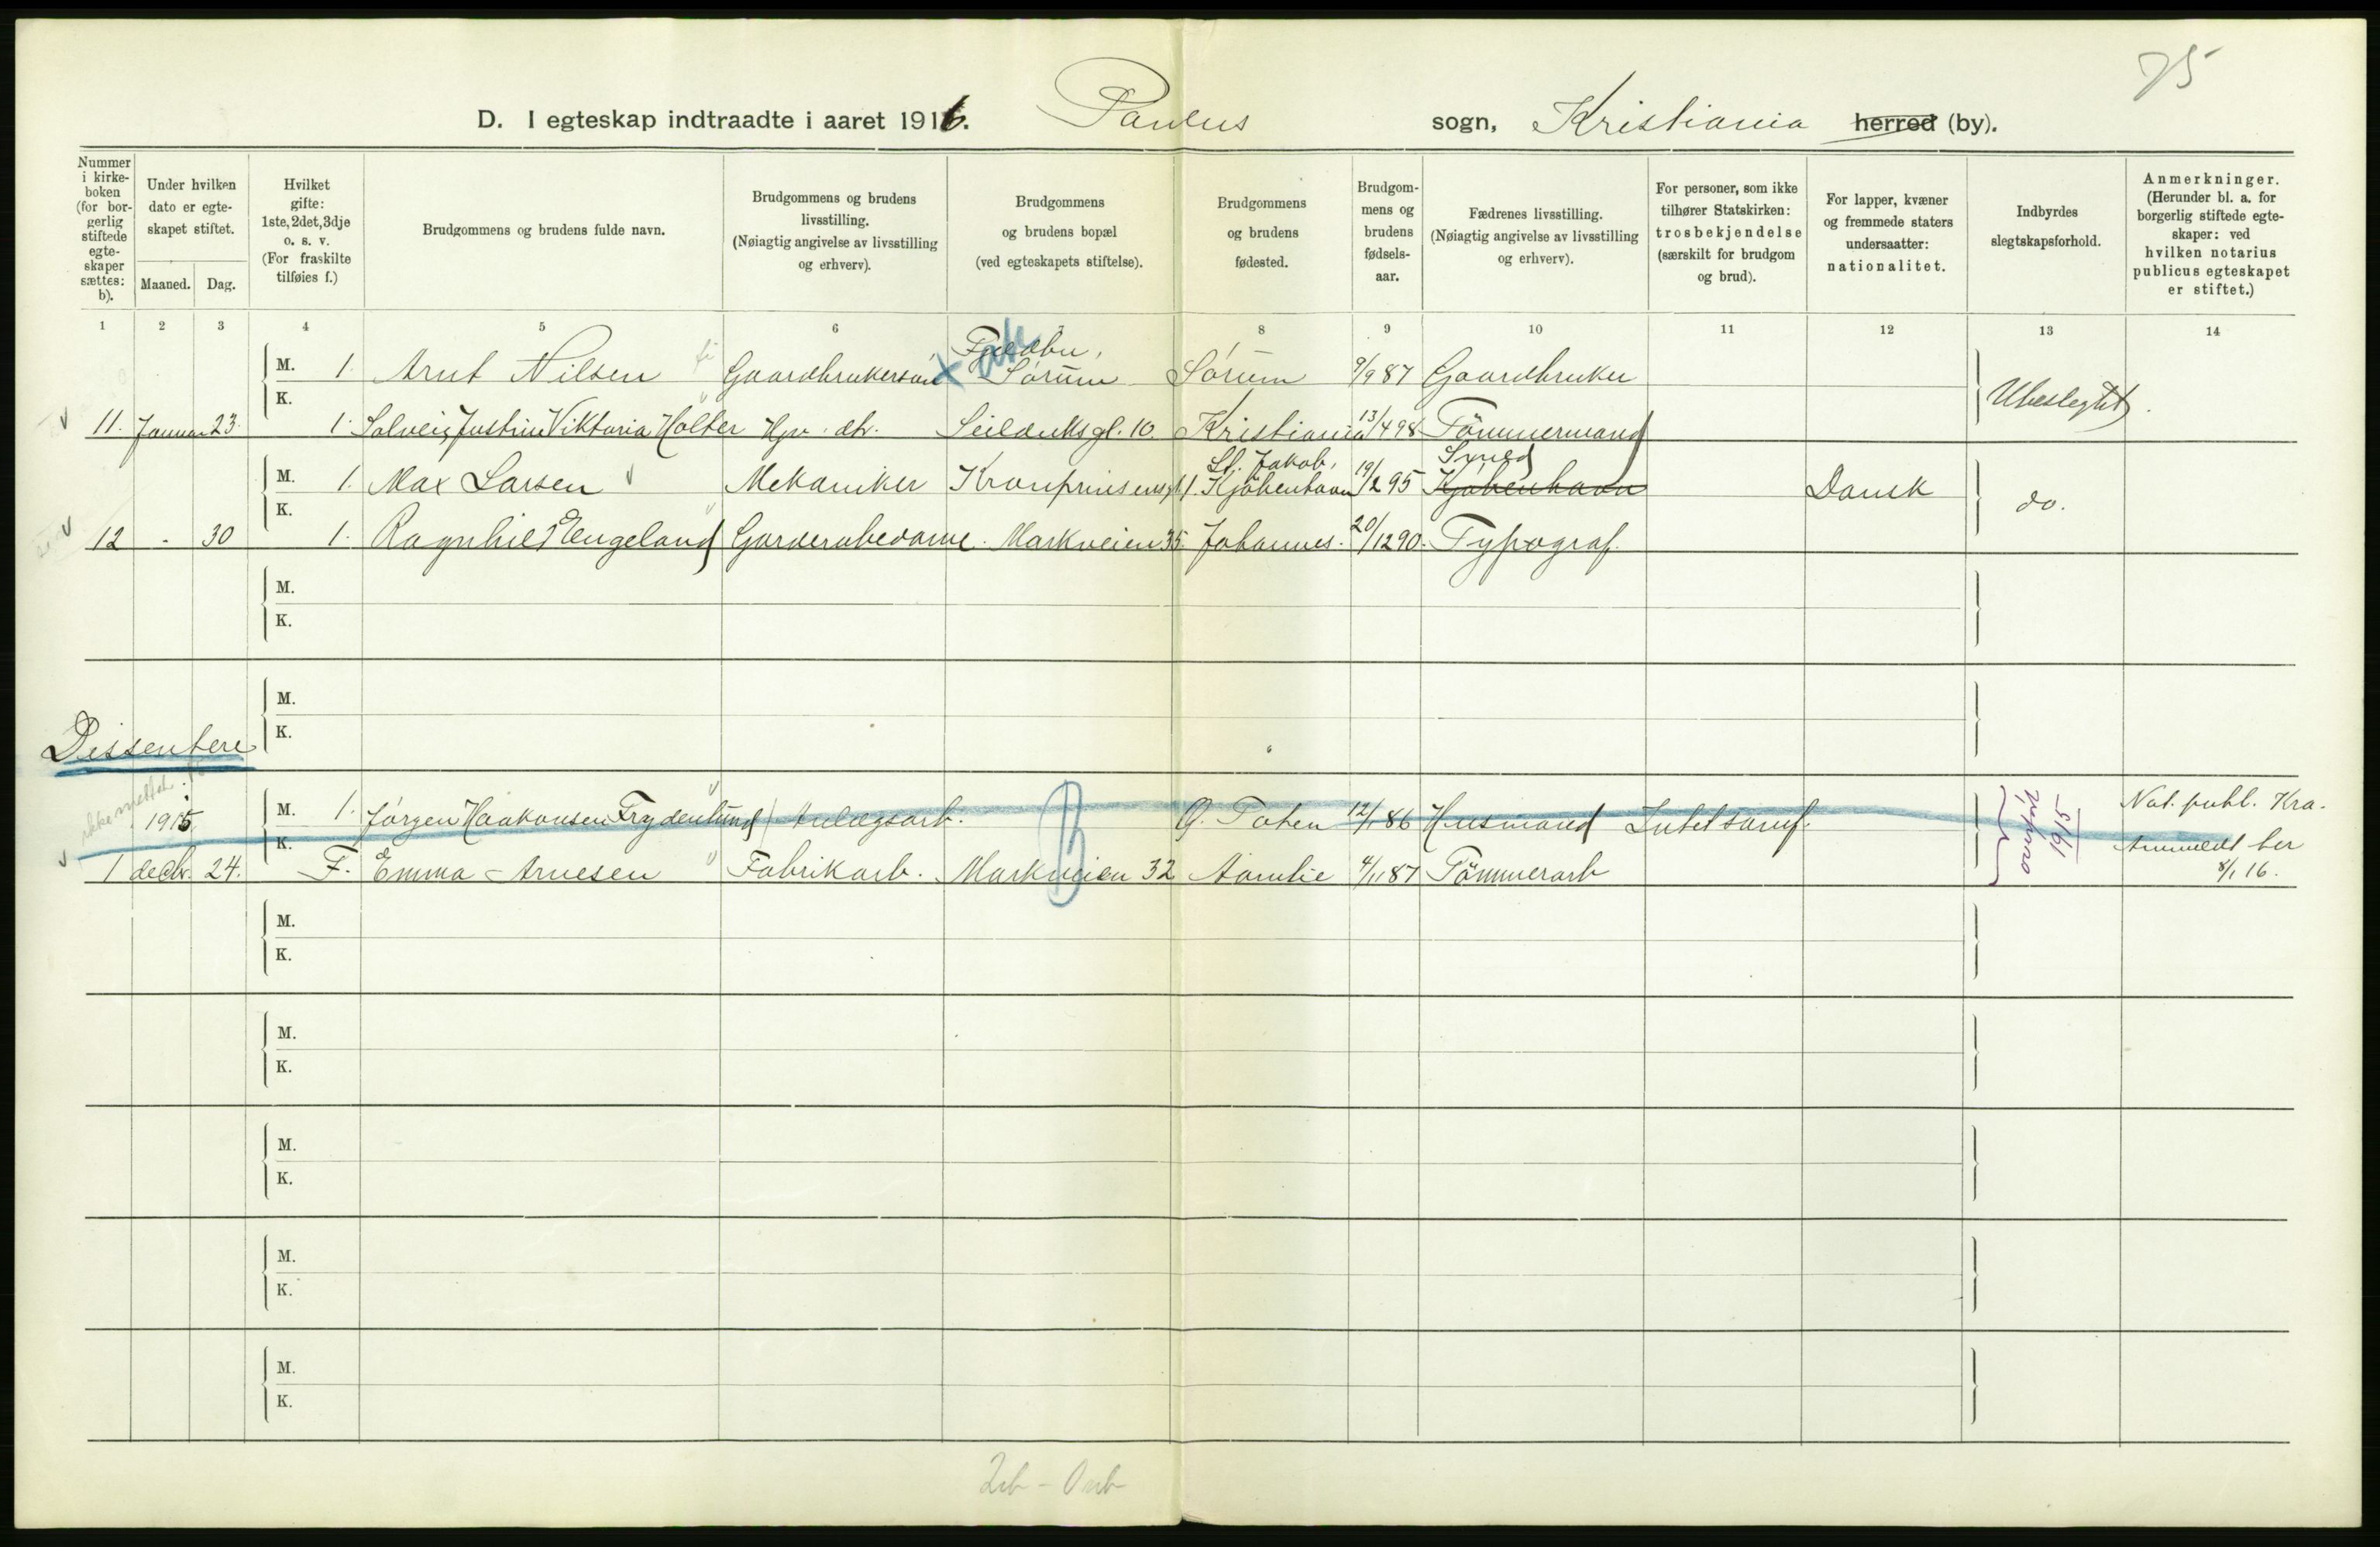 75
D. I egteskap indtraadte i aaret 1916. Paulus sogn, Kristiania herred (by).
Nummer i kirkeboken (for borgerlig stiftede egteskaper sættes: b).
Under hvilken dato er egteskapet stiftet.
Maaned. Dag.
Hvilket gifte: 1ste, 2det, 3dje o. s. v. (For fraskilte tilføies f.)
Brudgommens og brudens fulde navn.
Brudgommens og brudens livsstilling. (Nøiagtig angivelse av livsstilling og erhverv).
Brudgommens og brudens bopæl (ved egteskapets stiftelse).
Brudgommens og brudens fødested.
Brudgommens og brudens fødselsaar.
Fædrenes livsstilling. (Nøiagtig angivelse av livsstilling og erhverv).
For personer, som ikke tilhører Statskirken: trosbekjendelse (særskilt for brudgom og brud).
For lapper, kvæner og fremmede staters undersaatter: nationalitet.
Indbyrdes slegtskapsforhold.
Anmerkninger. (Herunder bl. a. for borgerlig stiftede egteskaper: ved hvilken notarius publicus egteskapet er stiftet.)
1 2 3 4 5 6 8 9 10 11 12 13 14
M. 1. Arnt Nilsen Gaardbrukersön Fjeldbu, Sörum Sörum 9/9 87 Gaardbruker
Ubeslegtet.
K.
11. Januar 23. 1. Solveig Justine Viktoria Holter Hgv. dtr. Seilduksgt. 10. Kristiania 13/4 98 Tömmermand
M. 1. Max Larsen Mekaniker Kronprinsensgt 1. St. Jakob, Kjöbenhavn 19/2 95 Smed Kjöbenhavn Dansk
do.
K.
12 - 30 1. Ragnhild Engeland Garderobedame. Markveien 35. Johannes. 20/12 90. Typograf.
M.
K.
M.
K.
Dissentere
ikke meldt
1915. M. 1. Jörgen Haakonsen Frydenlund Anlægsarb. Ö. Toten 12/1 86 Husmand Intet samf. Not. publ. Kra.
overfört 1915
K. Anmeldt her
1 decbr. 24. F. Emma Arnesen Fabrikarb. Markveien 32 Aamlie 4/11 87 Tömmerarb 8/1 16.
B
M.
K.
M.
K.
M.
K.
M.
K.
M.
K.